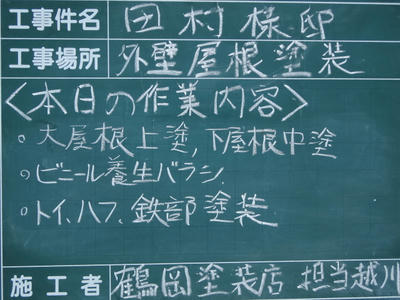 工事件名 田村様邸
工事場所 外壁屋根塗装
〈本日の作業内容〉
○大屋根上塗,下屋根中塗
○ビニール養生バラシ
○トイ、ハフ、鉄部塗装
施工者 鶴岡塗装店 担当越川